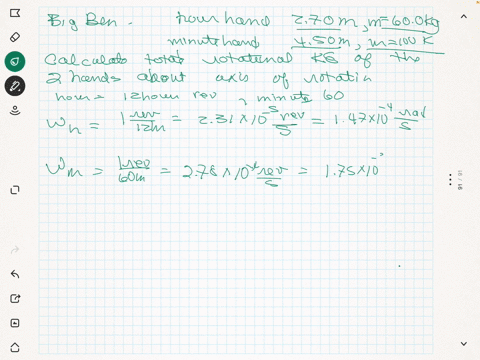 Big Ben - hour hand 2.70 m, m=60.0kg
minute hand 4.50 m, m=100 K
Calculate total rotational KE of the
2 hands about axis of rotatin
hour = 12hour rev, minute 60
Wh = 1 rev/12h = 2.31 × 10^-5 rev/s = 1.47×10^-4 rad/s
Wm = 1 rev/60m = 2.78 × 10^-4 rev/s = 1.75×10^-